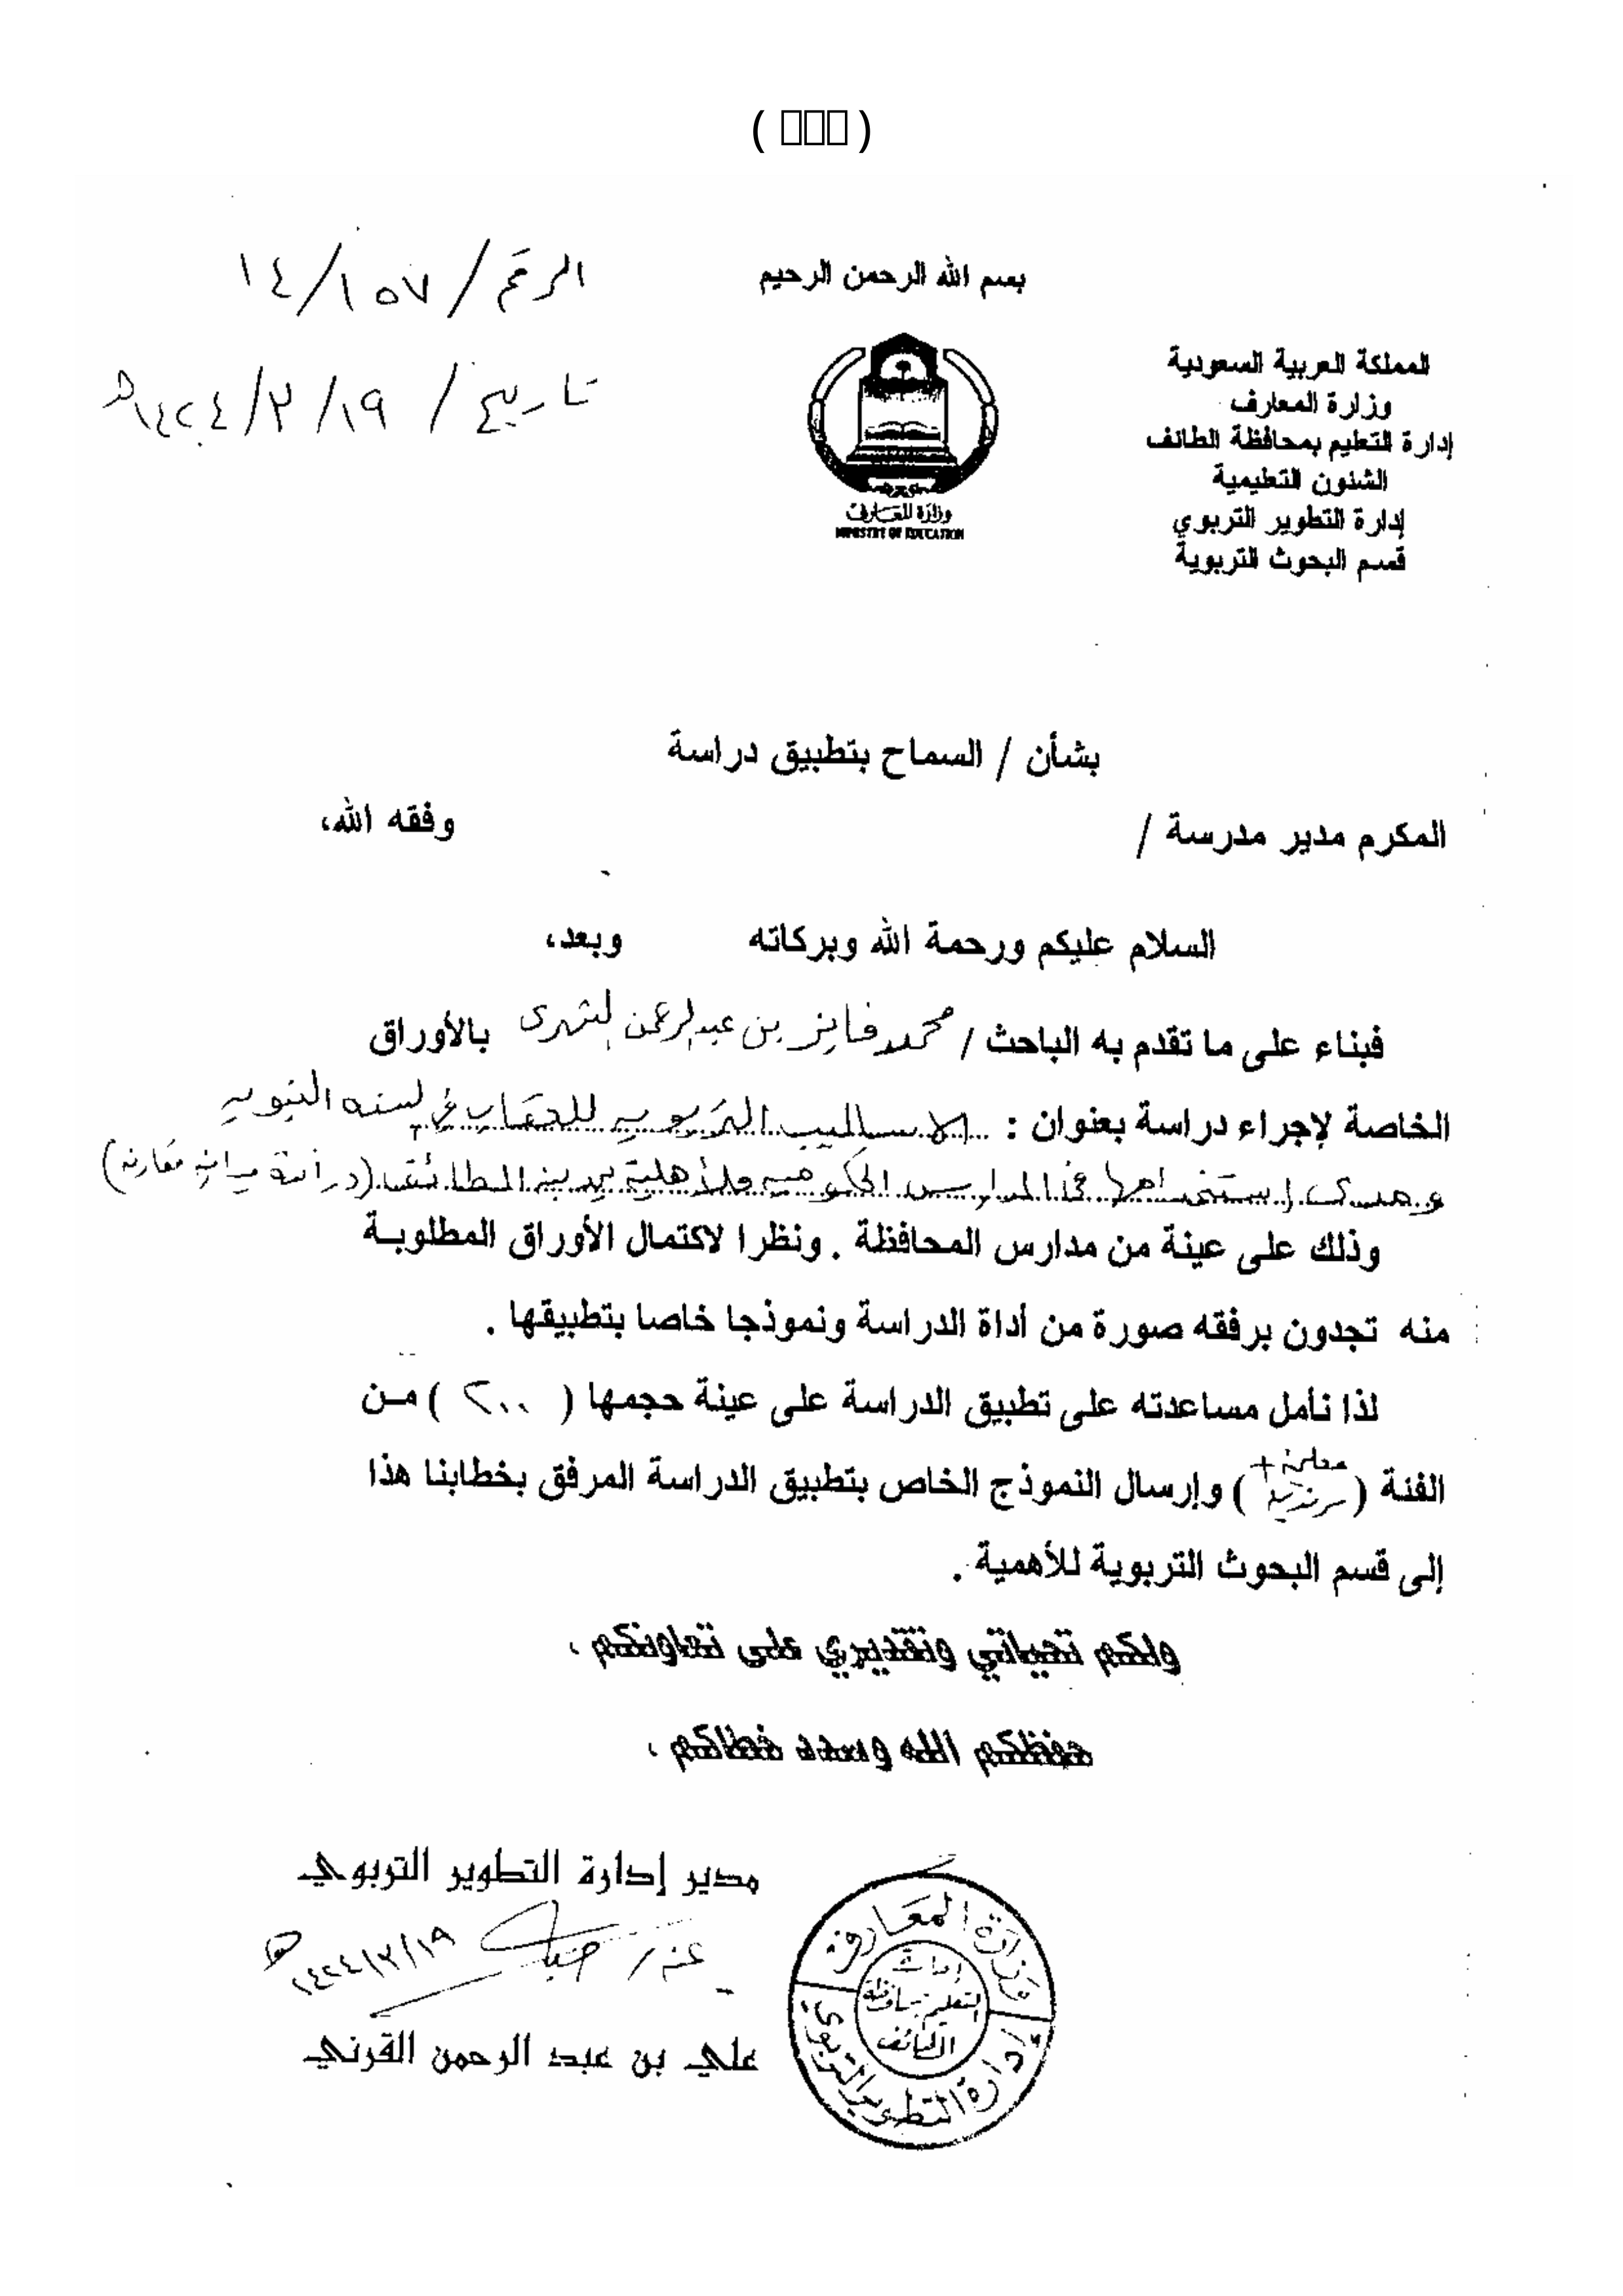 بسم الله الرحمن الرحيم
الرقم / ١٥٧ / ١٤
تاريخ / ١٩ / ٣ / ١٤٢٤هـ
المملكة العربية السعودية
وزارة المعارف
إدارة التعليم بمحافظة الطائف
الشئون التعليمية
إدارة التطوير التربوي
قسم البحوث التربوية
وزارة المعارف
MINISTRY OF EDUCATION
بشأن / السماح بتطبيق دراسة
المكرم مدير مدرسة / وفقه الله،
السلام عليكم ورحمة الله وبركاته وبعد،
فبناء على ما تقدم به الباحث / محمد فايز بن عبدالرحمن الشهري بالأوراق
الخاصة لإجراء دراسة بعنوان : الاساليب التربويه للعقاب في السنه النبويه
ومدى استخدامها في المدارس الحكوميه والأهلية بمدينة الطائف (دراسة ميدانيه مقارنه)
وذلك على عينة من مدارس المحافظة . ونظرا لاكتمال الأوراق المطلوبة
منه تجدون برفقه صورة من أداة الدراسة ونموذجا خاصا بتطبيقها .
لذا نأمل مساعدته على تطبيق الدراسة على عينة حجمها ( ٢٠٠ ) من
الفئة ( + ) وإرسال النموذج الخاص بتطبيق الدراسة المرفق بخطابنا هذا
إلى قسم البحوث التربوية للأهمية .
ولكم تحياتي وتقديري على تعاونكم ،
حفظكم الله وسدد خطاكم ،
مدير إدارة التطوير التربوي
عنه / ١٤٢٤/٣/١٩هـ
علي بن عبد الرحمن القرني
وزارة المعارف
التعليم بمحافظة
الطائف
إدارة التطوير التربوي